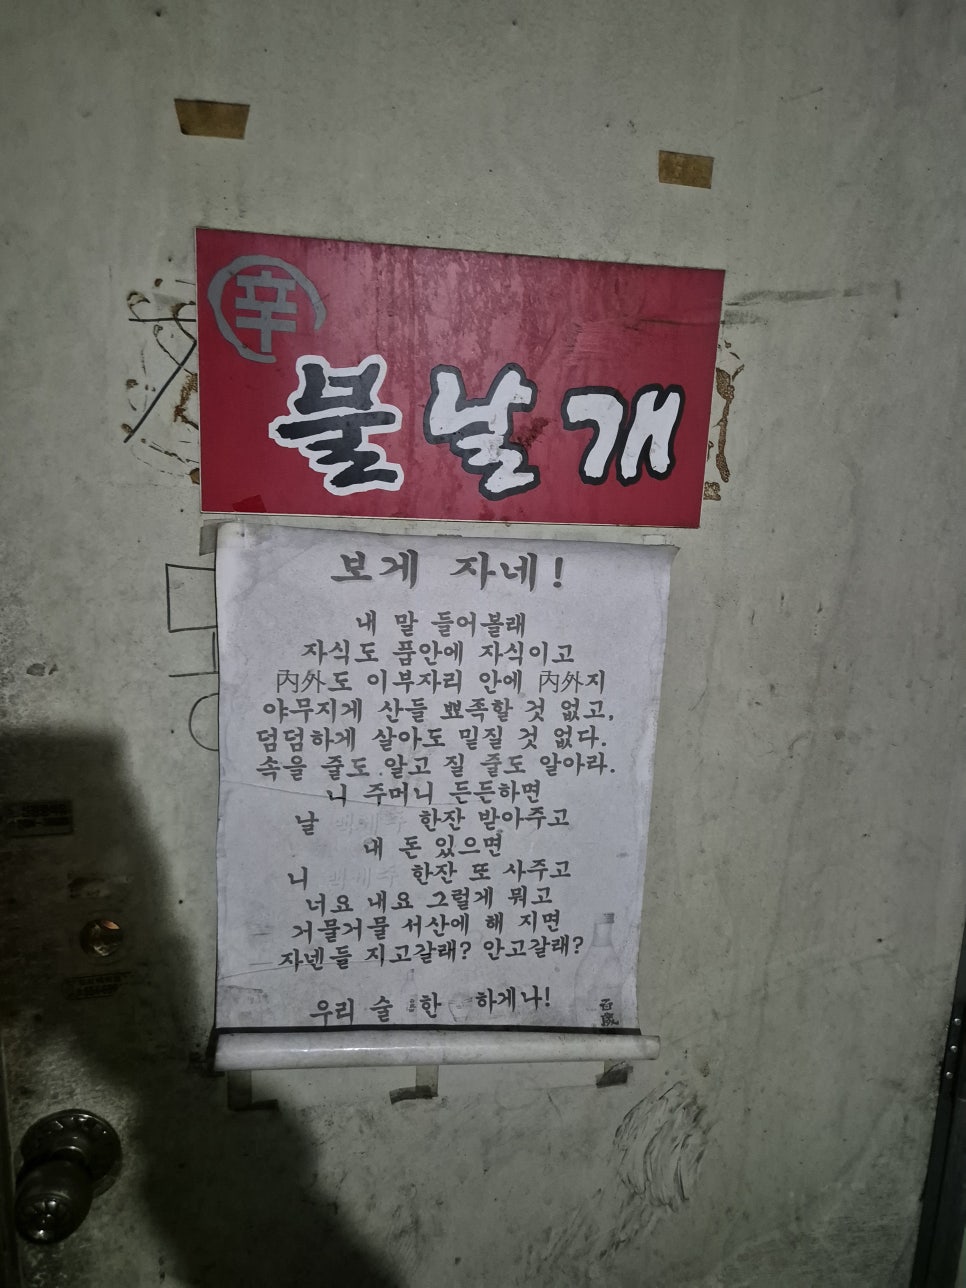 辛
불날개
보게 자네!
내 말 들어볼래
자식도 품안에 자식이고
內外도 이부자리 안에 內外지
야무지게 산들 뾰족할 것 없고,
덤덤하게 살아도 밑질 것 없다.
속을 줄도 알고 질 줄도 알아라.
니 주머니 든든하면
날 백세주 한잔 받아주고
내 돈 있으면
니 백세주 한잔 또 사주고
너요 내요 그럴게 뭐고
거물거물 서산에 해 지면
자넨들 지고갈래? 안고갈래?
우리 술 한 하게나!
百歲